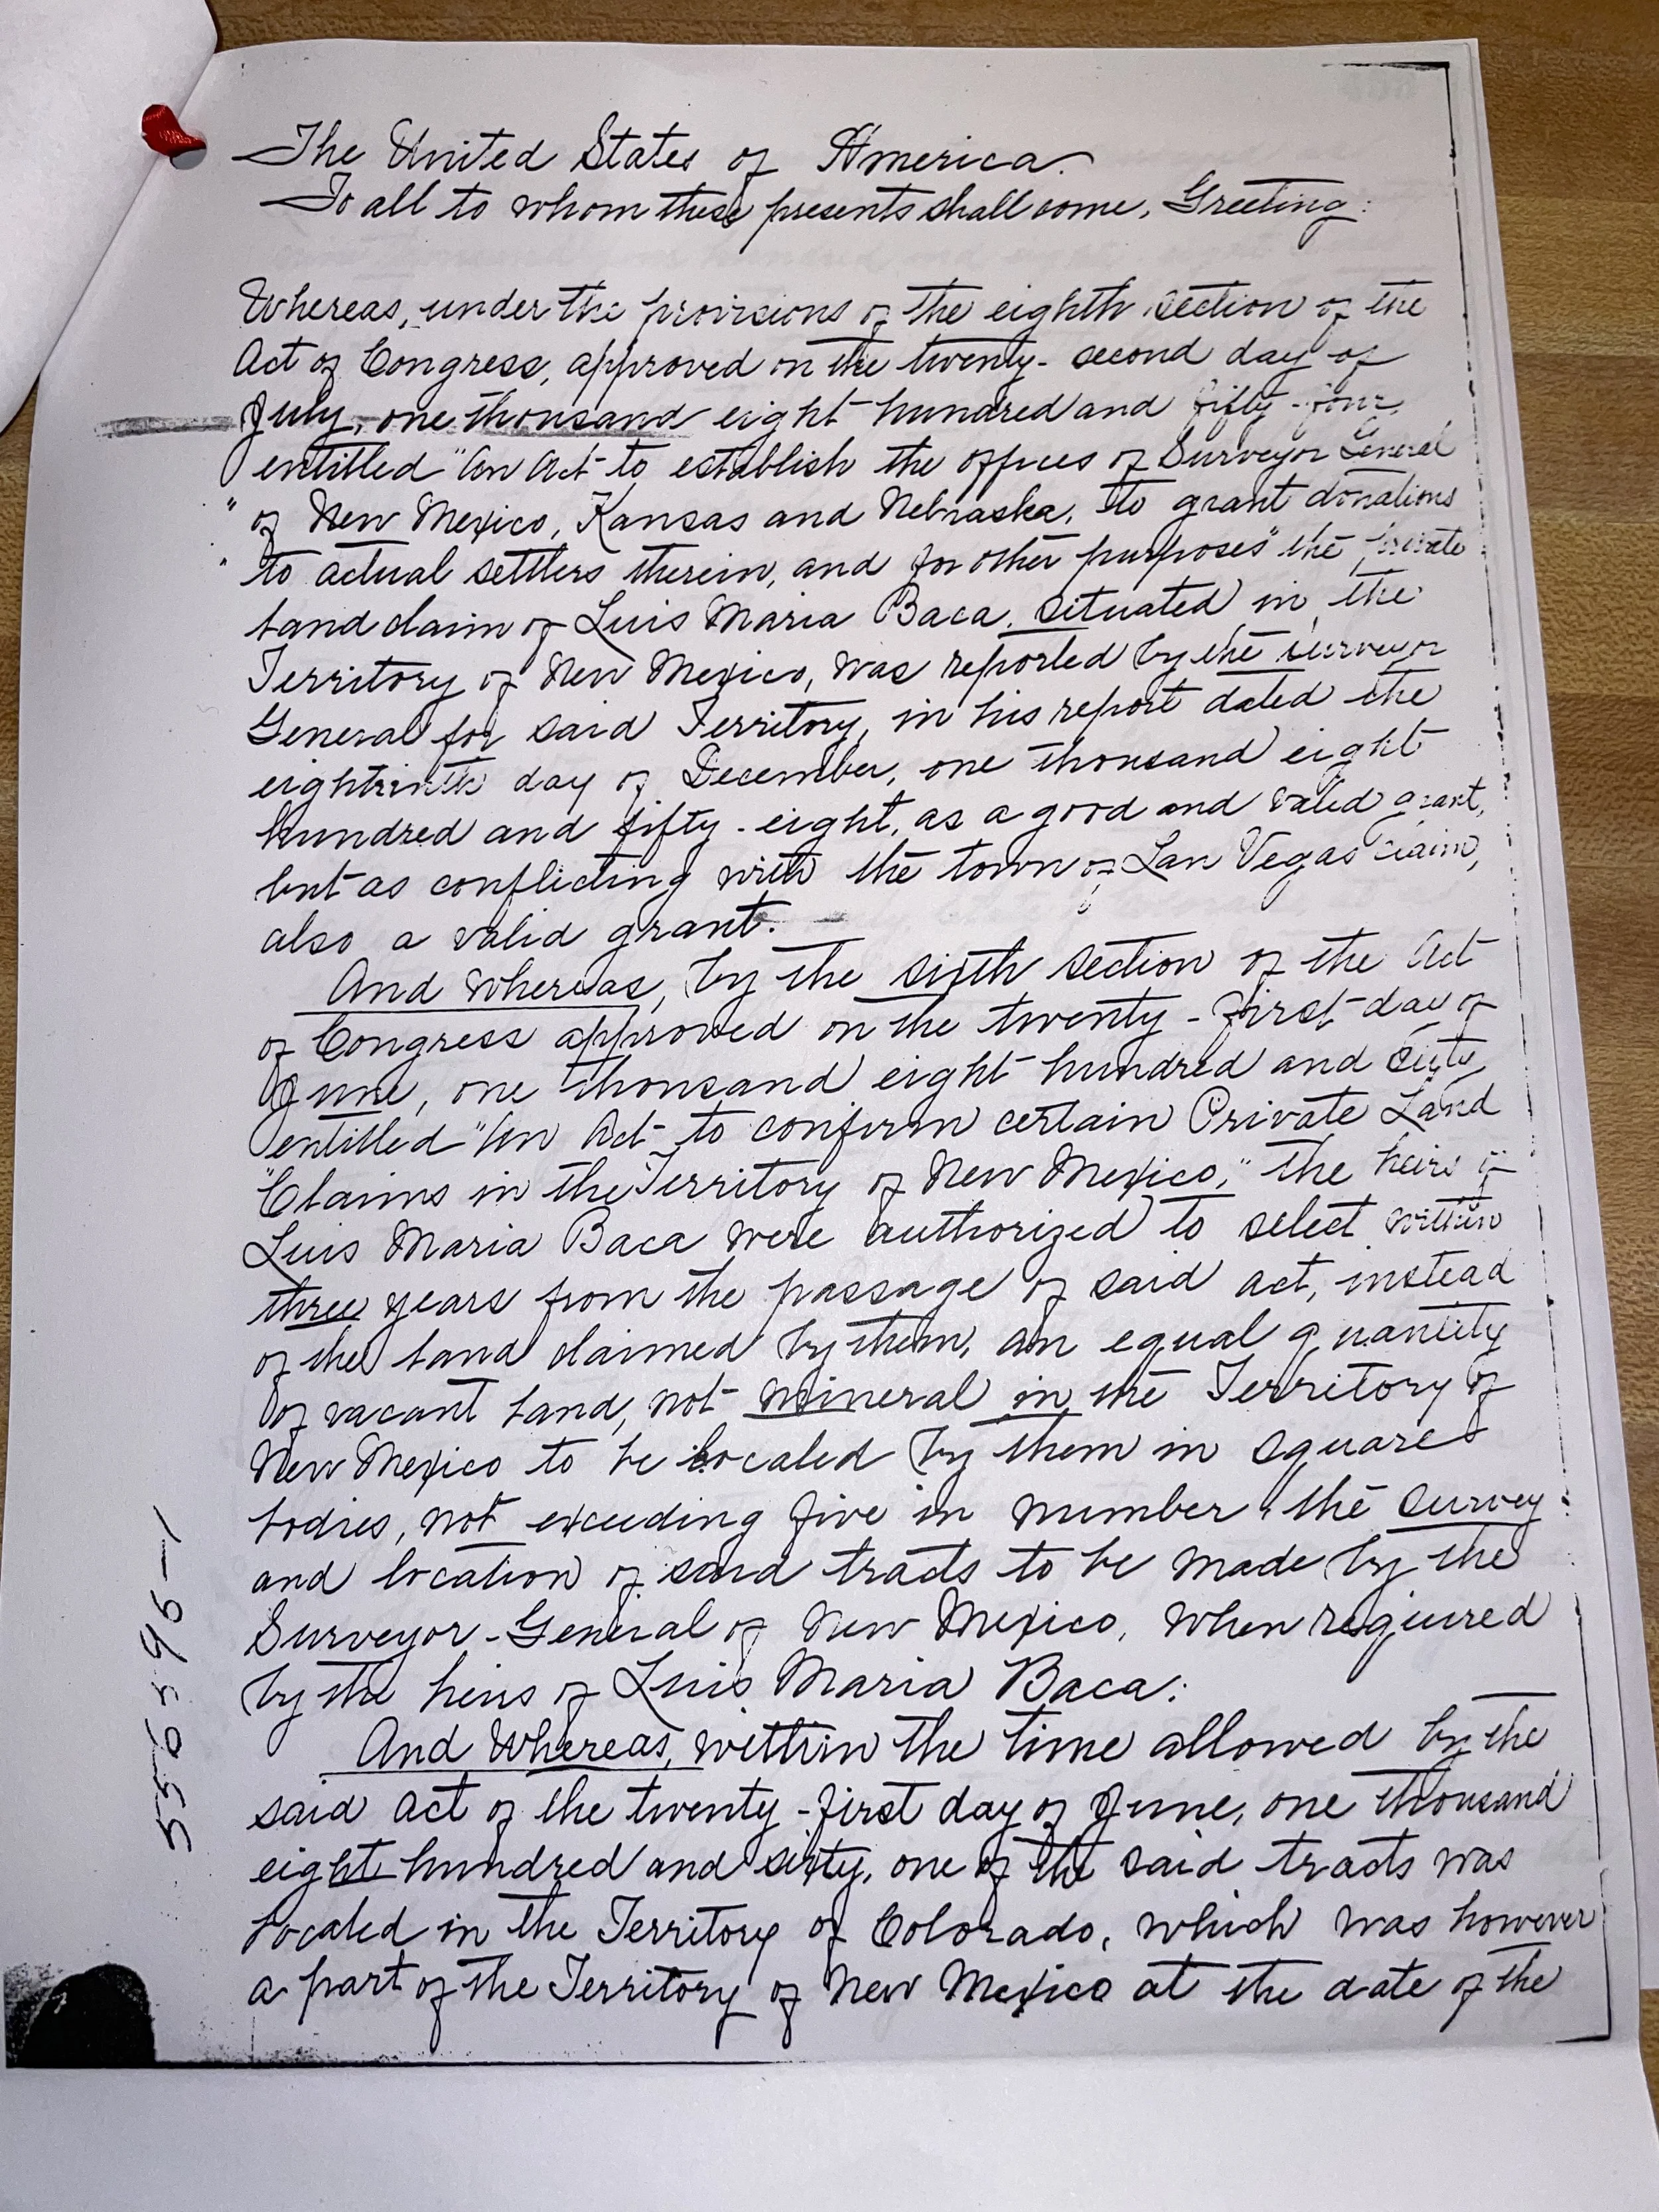 The United States of America.
To all to whom these presents shall come, Greeting:
Whereas, under the provisions of the eighth section of the
Act of Congress, approved on the twenty-second day of
July, one thousand eight hundred and fifty-four,
entitled "An Act to establish the offices of Surveyor General
" of New Mexico, Kansas and Nebraska, to grant donations
" to actual settlers therein, and for other purposes" the private
land claim of Luis Maria Baca, situated in the
Territory of New Mexico, was reported by the surveyor
General for said Territory, in his report dated the
eighteenth day of December, one thousand eight
hundred and fifty-eight, as a good and valid grant,
but as conflicting with the town of Las Vegas claim,
also a valid grant.
And whereas, by the sixth section of the Act
of Congress approved on the twenty-first day of
June, one thousand eight hundred and sixty,
entitled "An Act to confirm certain Private Land
"Claims in the Territory of New Mexico," the heirs of
Luis Maria Baca were authorized to select within
three years from the passage of said act, instead
of the land claimed by them, an equal quantity
of vacant land, not mineral in the Territory of
New Mexico to be located by them in square
bodies, not exceeding five in number, the survey
and location of said tracts to be made by the
Surveyor-General of New Mexico, when required
by the heirs of Luis Maria Baca:
And Whereas, within the time allowed by the
said act of the twenty-first day of June, one thousand
eight hundred and sixty, one of the said tracts was
located in the Territory of Colorado, which was however
a part of the Territory of New Mexico at the date of the